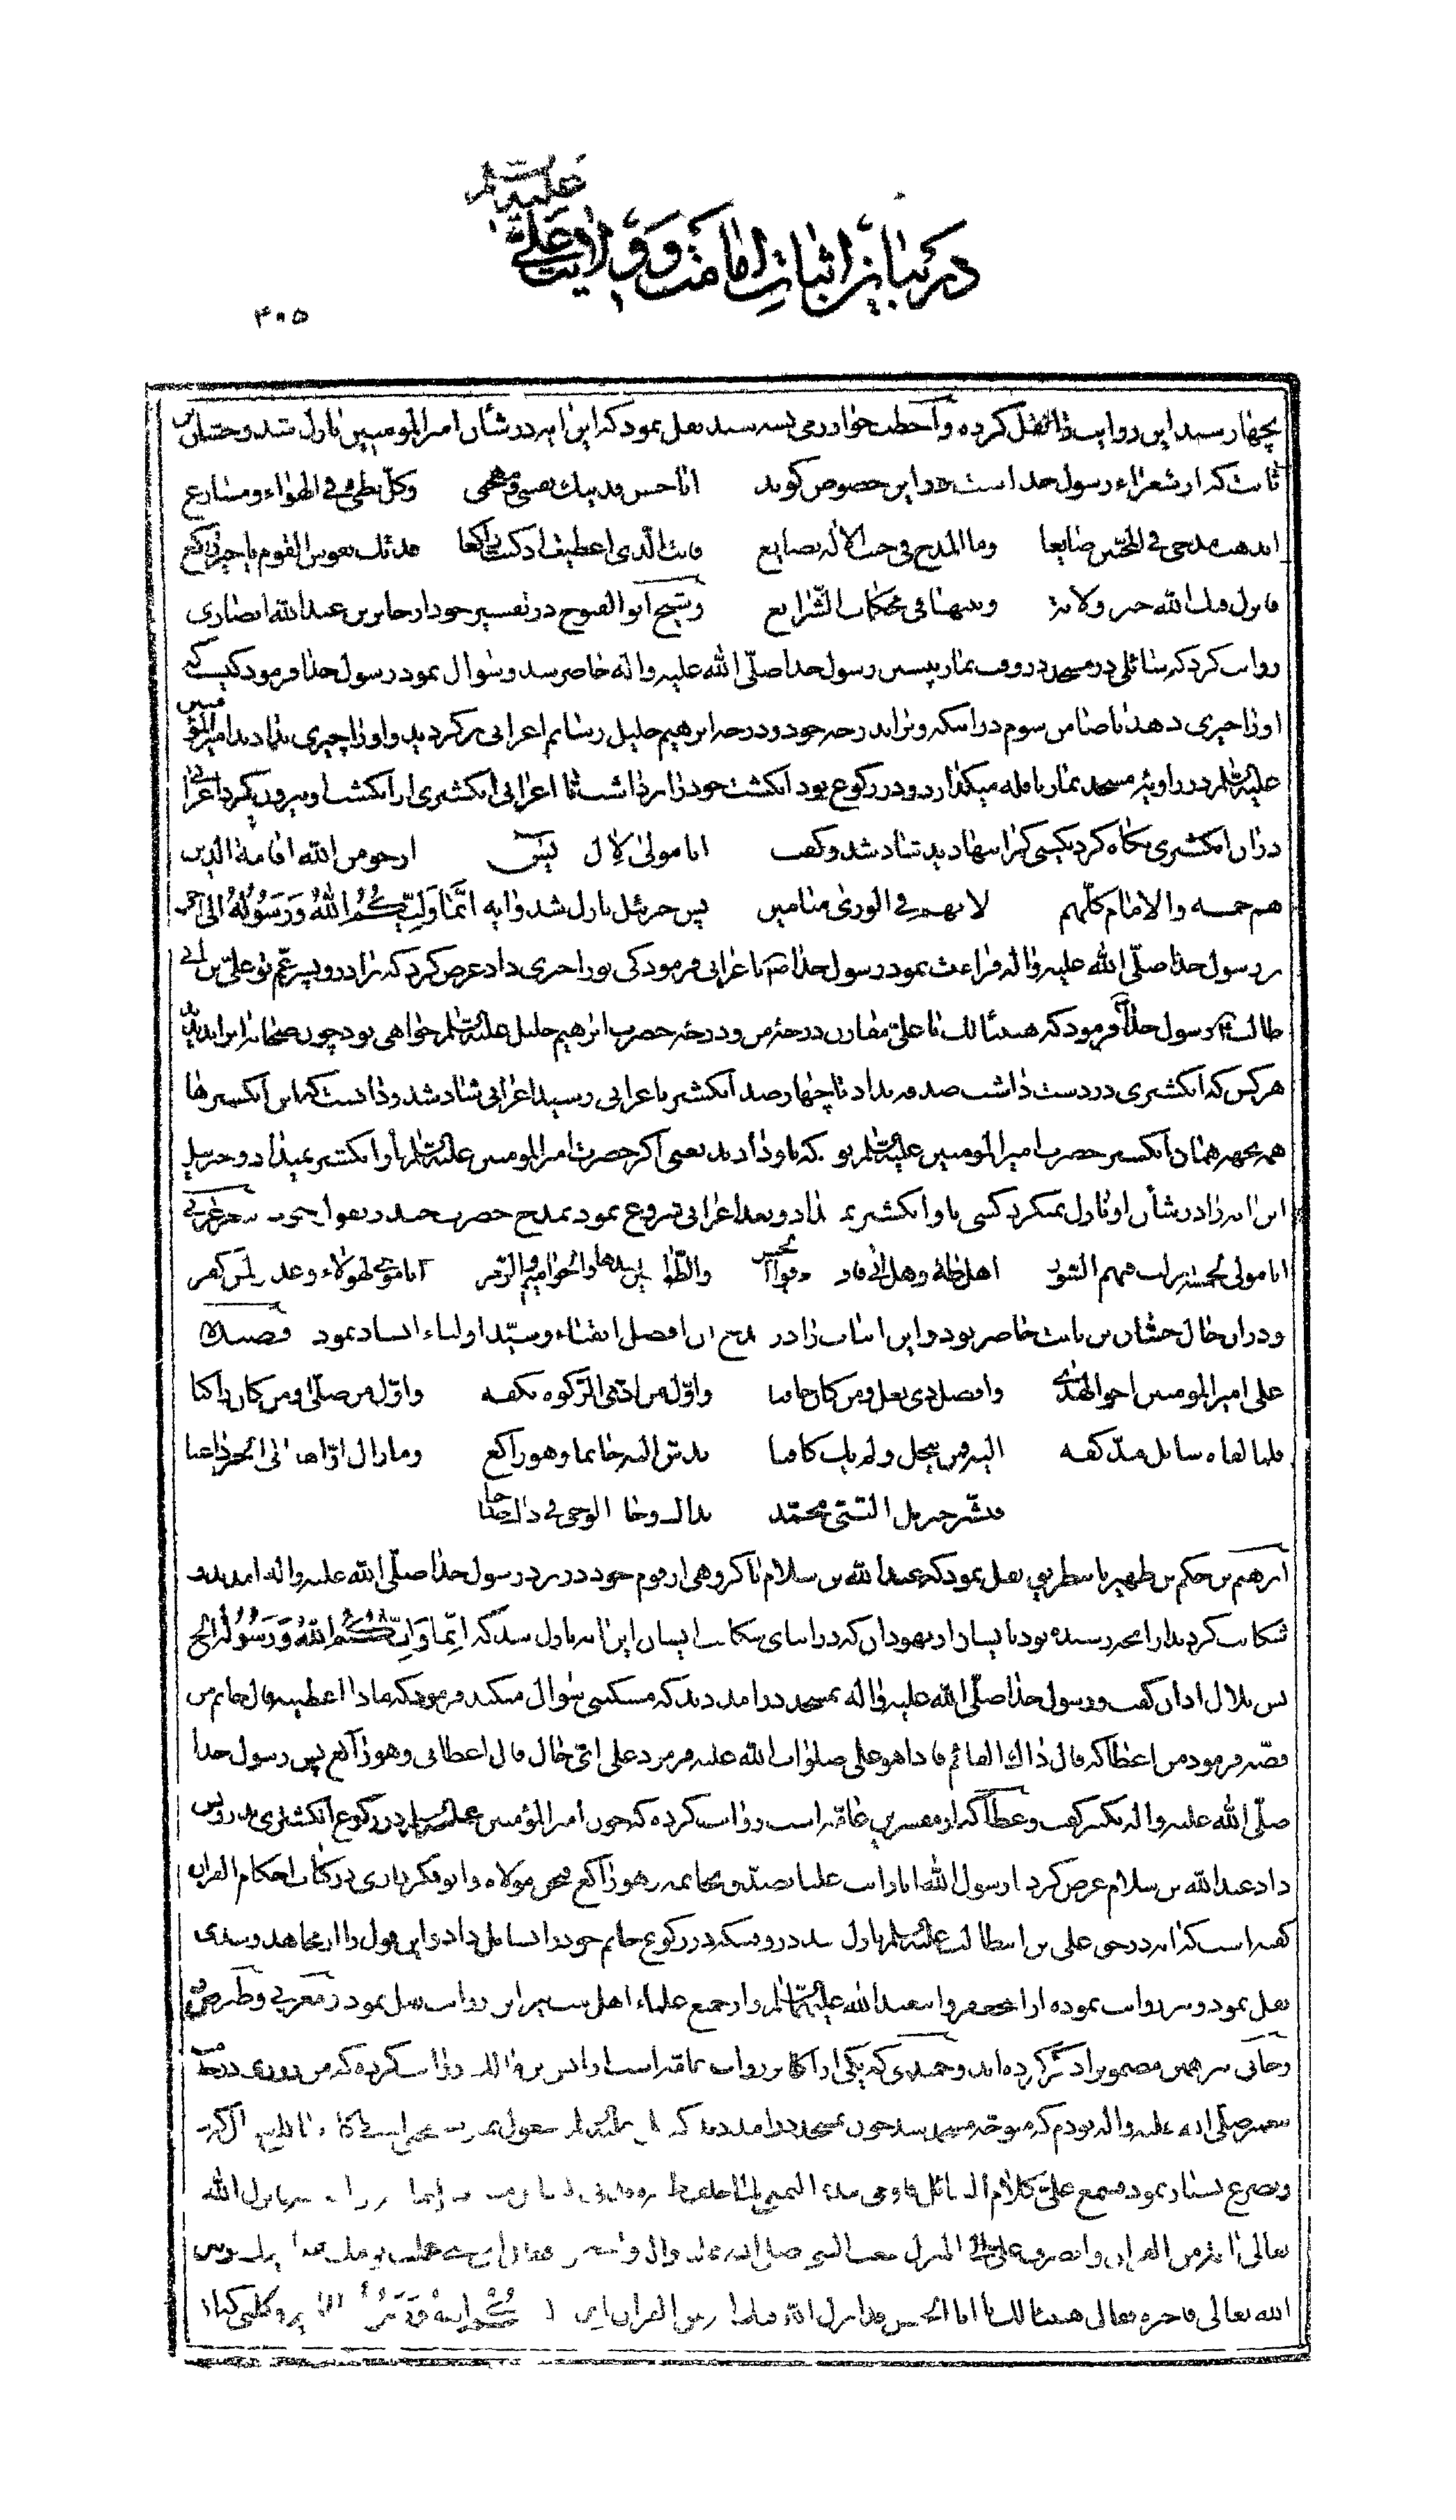 در بیان اثبات امامت و ولایت علی علیه السلام
۴۰۵
بچهار سند این روایت را نقل کرده و اخطب خوارزمی بسه سند نقل نمود که این آیه در شأن امیر المومنین نازل شد و حسان بن
ثابت که از شعراء رسول خدا است در این خصوص گوید ابا حسن تفدیک نفسی و مهجتی وکل بطیء فی الهواء و مسارع
ایذهب مدحی فی المحبّین ضایعا وما المدح فی حب الاله بضایع فانت الّذی اعطیت اذ کنت راکعا فدتک نفوس القوم یا خیر راکع
فانزل فیک الله خیر ولایة وبینها فی محکمات الشّرایع وشیخ ابو الفتوح در تفسیر خود از جابر بن عبد الله انصاری
روایت کرد که سائلی در مسجد در وقت نماز پیش رسول خدا صلّی الله علیه و اله حاضر شد و سؤال نمود رسول خدا فرمود کیست که
اورا چیزی دهد تا ضامن شوم در اینکه و برا بدرجه خود و درجه ابرهیم خلیل رسانم اعرابی برگردید و اورا چیزی ندادند امیر المؤمنین
علیه السّلم در زاویه مسجد نماز نافله میگذارد و در رکوع بود انگشت خود را برداشت تا اعرابی انگشتری از انگشت او بیرون کرد اعرابی
در ان انگشتری نگاه کرد بکسی که انرا باو دید شاد شد و گفت انا مولی لال یس ارجو من الله اقامة الدین
هم خمسه والانام کلّهم لانهم فی الوری میامین پس جبرئیل نازل شد و آیه انَّمٰا وَلِیُّکُمُ اللهُ وَرَسُولُهُ الی اخر
بر رسول خدا صلّی الله علیه و اله قراءت نمود رسول خدا باعرابی فرمود کی تورا چیزی داد عرض کرد که برادر و پسر عمّ تو علی بن ابی
طالب رسول خدا فرمود که هنیئا لک یا علی مقارن درجه من و درجه حضرت ابرهیم خلیل علیه السّلم خواهی بود چون صحابه این بدیدند
هر کس که انگشتری در دست داشت صدقه بداد تا چهار صد انگشتر باعرابی رسید اعرابی شاد شد و دانست که این انگشترها
همه بجهة همان انگشتر حضرت امیر المومنین علیه السّلم بود که باو دادند یعنی اگر حضرت امیر المومنین علیه السّلم باو انگشتر نمیداد و جبرئیل
این آیه را در شأن او نازل نمیکرد کسی باو انگشتر نمیداد و بعد اعرابی شروع نمود بمدح حضرت حیدر بقول شعر عربی
انا مولی لخمسة نزلت فیهم السّور اهل طه و هل اتی فاقرؤا والطّواسین بعدها والحوامیم والزّمر انا مولی لهؤلاء وعدو لمن کفر
و در ان حال حسّان بن ثابت حاضر بود و این ابیات را در مدح ان افضل اتقیاء و سیّد اولیاء انشاد نمود قصیدة
علی امیر المومنین اخو الهدی وافضل ذی نعل ومن کان حافیا واوّل من ادّی الزکوة بکفه واوّل من صلّی ومن کان زاکیا
فلما اتاه سائل مدّ کفه الیه ومن یبخل ولم یک جافیا فدسّ الیه خاتما وهو راکع وما زال اوّاها الی الخیر داعیا
فبشّر جبریل النبی محمّد بذاک وجاء الوحی فی ذاک ضاحیا
ابرهیم بن حکم بن ظهیر باسطر نقل نمود که عبد الله بن سلام با گروهی از قوم خود در نزد رسول خدا صلّی الله علیه و اله امدند و
شکایت کردند از انچه رسیده بود بایشان از یهودان که در اثنای شکایت ایشان این آیه نازل شد که اِنَّمٰا وَلِیُّکُمُ اللهُ وَرَسُولُهُ الخ
پس بلال اذان گفت و رسول خدا صلّی الله علیه و اله بمسجد درامد دید که مسکینی سؤال میکند فرمود که ماذا اعطیت قال خاتم من
فضّه فرمود من اعطاکه قال ذاک القائم فاذا هو علی صلوات الله علیه فرمود علی ایّ حال قال اعطانی وهو راکع پس رسول خدا
صلّی الله علیه و اله تکبیر گفت و عطا که از مفسرین عامّه است روایت کرده که چون امیر المؤمنین علیه السلم در رکوع انگشتری بدرویش
داد عبد الله بن سلام عرض کرد یا رسول الله انا رایت علیا تصدّق بخاتمه وهو راکع فنحن نتولاه و ابو بکر رازی در کتاب احکام القران
گفته است که آیه در حق علی بن ابیطالب علیه السّلم نازل شد در وقتیکه در رکوع خاتم خود را بسائل داد و این قول را از مجاهد و سدی
نقل نمود و نیز روایت نموده از ابا جعفر و ابیعبد الله علیهما السّلم و از جمیع علماء اهل بیت این روایت نقل نمود و مغربی و طبری
و رمانی نیز همین مضمون را ذکر کرده اند و حمیدی که یکی از اکابر روایت عامّه است از انس بن مالک روایت کرده که من روزی در خدمت
پیغمبر صلی الله علیه و اله بودم که متوجه مسجد شد چون بمسجد درامد
و تضرع بسیار نمود فسمع علی کلام السائل
تعالی القران وانصرف علی الی المنزل
الله تعالی فاخبره فقال هنیئا لک یا ابا الحسن قد انزل الله فیک